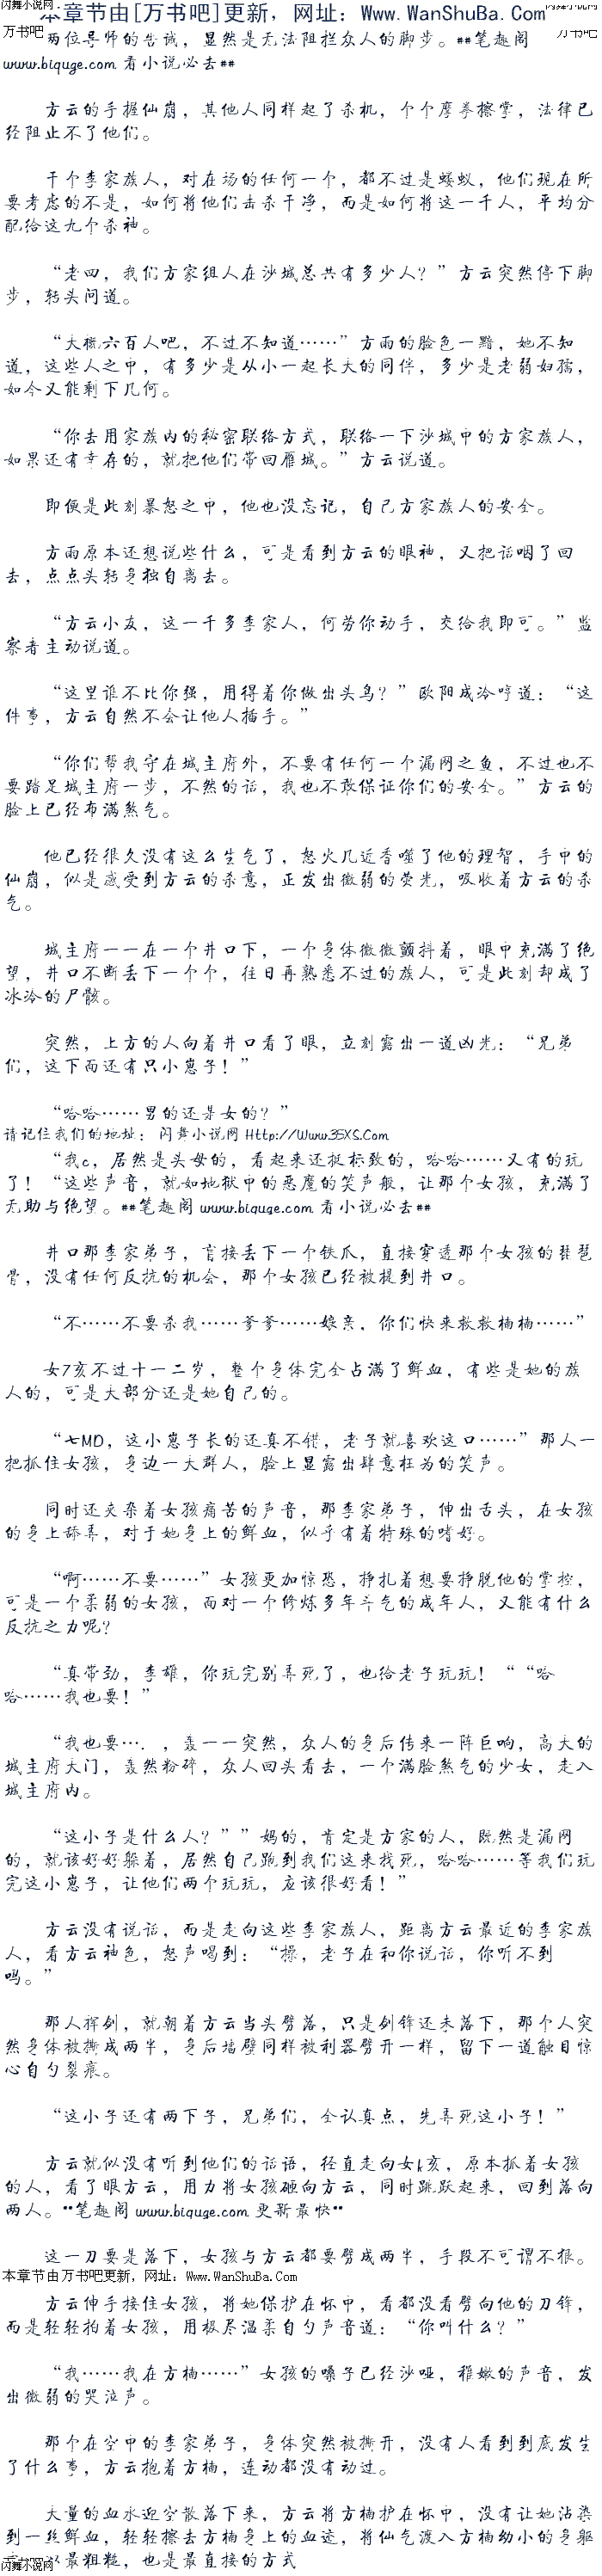 闪舞小说网 .
闪舞小说网
本章节由[万书吧]更新，网址：Www.WanShuBa.Com
万书吧
万书吧
两位导师的告诫，显然是无法阻拦众人的脚步。##笔趣阁
www.biquge.com 看小说必去##
方云的手握仙崩，其他人同样起了杀机，个个摩拳擦掌，法律已
经阻止不了他们。
千个李家族人，对在场的任何一个，都不过是蝼蚁，他们现在所
要考虑的不是，如何将他们击杀干净，而是如何将这一千人，平均分
配给这九个杀神。
“老四，我们方家组人在沙城总共有多少人？”方云突然停下脚
步，转头问道。
“大概六百人吧，不过不知道……”方雨的脸色一黯，她不知
道，这些人之中，有多少是从小一起长大的同伴，多少是老弱妇孺，
如今又能剩下几何。
“你去用家族内的秘密联络方式，联络一下沙城中的方家族人，
如果还有幸存的，就把他们带回雁城。”方云说道。
即便是此刻暴怒之中，他也没忘记，自己方家族人的安全。
方雨原本还想说些什么，可是看到方云的眼神，又把话咽了回
去，点点头转身独自离去。
“方云小友，这一千多李家人，何劳你动手，交给我即可。”监
察者主动说道。
“这里谁不比你强，用得着你做出头鸟？”欧阳成冷哼道：“这
件事，方云自然不会让他人插手。”
“你们帮我守在城主府外，不要有任何一个漏网之鱼，不过也不
要踏足城主府一步，不然的话，我也不敢保证你们的安全。”方云的
脸上已经布满煞气。
他已经很久没有这么生气了，怒火几近吞噬了他的理智，手中的
仙崩，似是感受到方云的杀意，正发出微弱的荧光，吸收着方云的杀
气。
城主府一一在一个井口下，一个身体微微颤抖着，眼中充满了绝
望，井口不断丢下一个个，往日再熟悉不过的族人，可是此刻却成了
冰冷的尸骸。
突然，上方的人向着井口看了眼，立刻露出一道凶光：“兄弟
们，这下面还有只小崽子！”
“哈哈……男的还是女的？”
请记住我们的地址： 闪舞小说网 Http://Www.35XS.Com
“我c，居然是头母的，看起来还挺标致的，哈哈……又有的玩
了！“这些声音，就如地狱中的恶魔的笑声般，让那个女孩，充满了
无助与绝望。##笔趣阁 www.biquge.com 看小说必去##
井口那李家弟子，直接丢下一个铁爪，直接穿透那个女孩的琵琶
骨，没有任何反抗的机会，那个女孩已经被提到井口。
“不……不要杀我……爹爹……娘亲，你们快来救救楠楠……”
女7亥不过十一二岁，整个身体完全占满了鲜血，有些是她的族
人的，可是大部分还是她自己的。
“七MD，这小崽子长的还真不错，老子就喜欢这口……”那人一
把抓住女孩，身边一大群人，脸上显露出肆意枉为的笑声。
同时还夹杂着女孩痛苦的声音，那李家弟子，伸出舌头，在女孩
的身上舔弄，对于她身上的鲜血，似乎有着特殊的嗜好。
“啊……不要……”女孩更加惊恐，挣扎着想要挣脱他的掌控，
可是一个柔弱的女孩，面对一个修炼多年斗气的成年人，又能有什么
反抗之力呢？
“真带劲，李雄，你玩完别弄死了，也给老子玩玩！““哈
哈……我也要！”
“我也要….，轰一一突然，众人的身后传来一阵巨响，高大的
城主府大门，轰然粉碎，众人回头看去，一个满脸煞气的少女，走入
城主府内。
“这小子是什么人？””妈的，肯定是方家的人，既然是漏网
的，就该好好躲着，居然自己跑到我们这来找死，哈哈……等我们玩
完这小崽子，让他们两个玩玩，应该很好看！”
方云没有说话，而是走向这些李家族人，距离方云最近的李家族
人，看方云神色，怒声喝到：“操，老子在和你说话，你听不到
吗。”
那人挥剑，就朝着方云当头劈落，只是剑锋还未落下，那个人突
然身体被撕成两半，身后墙壁同样被利器劈开一样，留下一道触目惊
心自勺裂痕。
“这小子还有两下子，兄弟们，全认真点，先弄死这小子！”
方云就似没有听到他们的话语，径直走向女k亥，原本抓着女孩
的人，看了眼方云，用力将女孩砸向方云，同时跳跃起来，回到落向
两人。**笔趣阁 www.biquge.com 更新最快**
这一刀要是落下，女孩与方云都要劈成两半，手段不可谓不狠。
本章节由万书吧更新，网址：Www.WanShuBa.Com
方云伸手接住女孩，将她保护在怀中，看都没看劈向他的刀锋，
而是轻轻拍着女孩，用极尽温柔自勺声音道：“你叫什么？”
“我……我在方楠……”女孩的嗓子已经沙哑，稚嫩的声音，发
出微弱的哭泣声。
那个在空中的李家弟子，身体突然被撕开，没有人看到到底发生
了什么事，方云抱着方楠，连动都没有动过。
大量的血水迎空散落下来，方云将方楠护在怀中，没有让她沾染
到一丝鲜血，轻轻擦去方楠身上的血迹，将仙气渡入方楠幼小的身躯
以最粗糙，也是最直接的方式
闪舞小说网